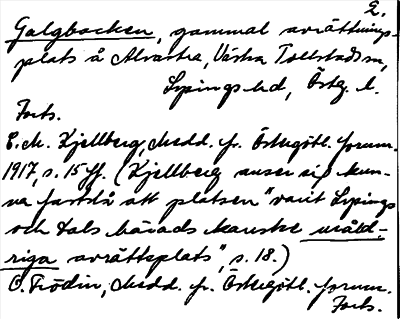 2.
Galgbacken, gammal avrättnings-
plats å Alvastra, Västra Tollstads sn,
Lysings hd, Östg. l.
Forts.
C. M. Kjellberg, Medd. fr. Östergötl. fornm.
1917, s. 15 ff. (Kjellberg anser sig kun-
na fastslå att platsen "varit Lysings
och Dals härads kanske uråld-
riga avrättsplats", s. 18.)
O. Frödin, Medd. fr. Östergötl. fornm.
Forts.